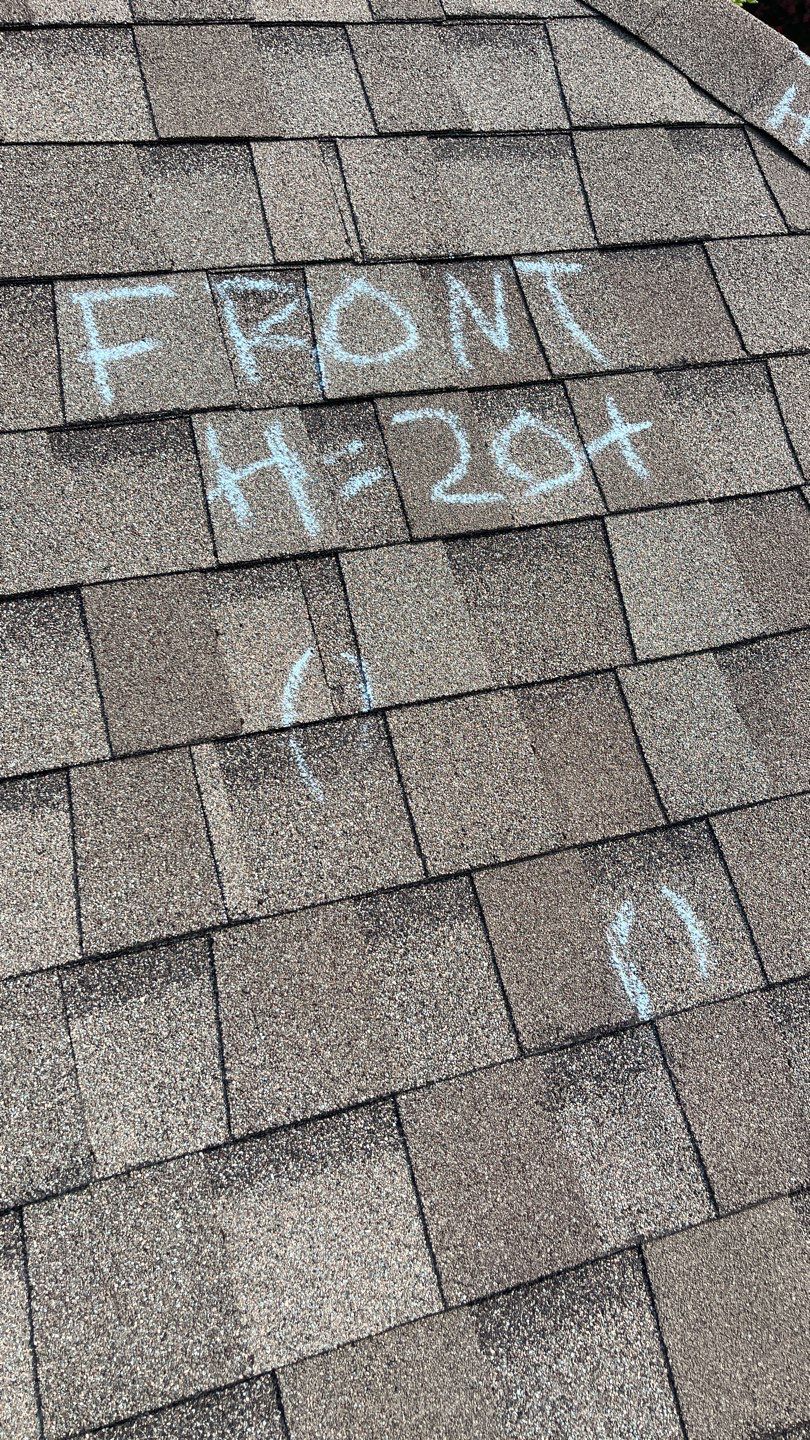 H
FRONT
H=20+
( )
( )